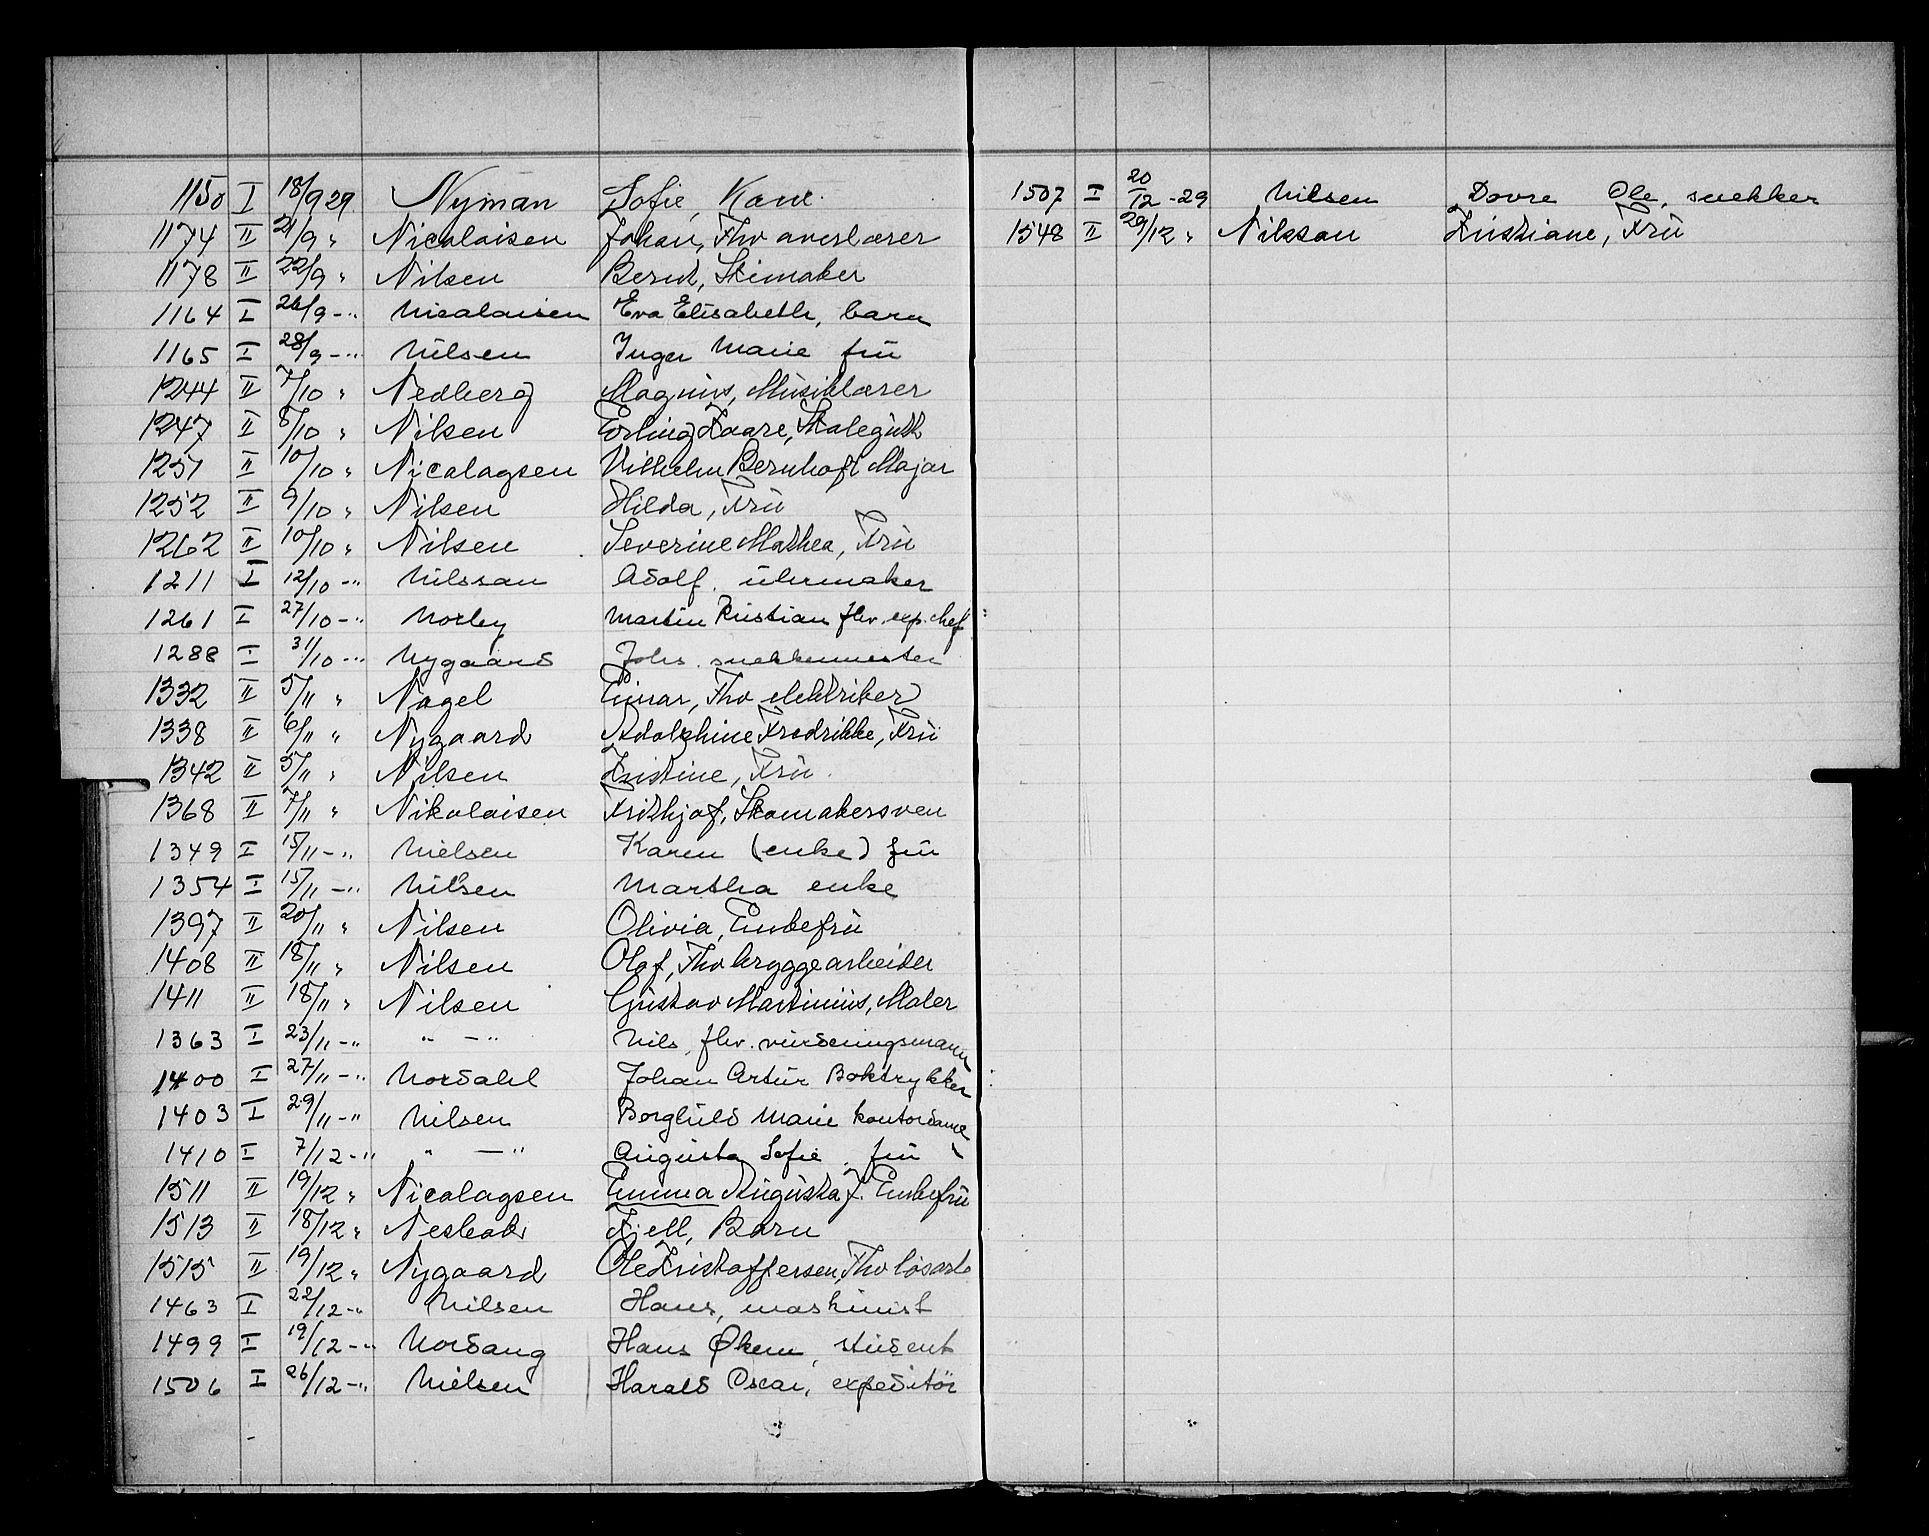 1150 I 18/9 29 Nyman Sofie, Kone.
1174 II 21/9 " Nicolaisen Johan, Fhv overlærer
1178 II 22/9 " Nilsen Bernt, Skimaker
1164 I 26/9 -" Nicolaisen Eva Elisabeth, barn
1165 I 28/9 -" Nilsen Inger Marie frü
1244 II 7/10 " Nedberg Magnus, Musiklærer
1247 II 8/10 " Nilsen Erling Kaare, Skolegutt
1251 II 10/10 " Nicolaysen Vilhelm Bernhoft Major
1252 II 9/10 " Nilsen Hilda, Frü
1262 II 10/10 " Nilsen Severine Mathea, Frü
1211 I 12/10 -" Nilssen Adolf, uhrmaker
1261 I 27/10 -" Norley Martin Kristian fhv. exp. chef
1288 I 31/10 -" Nygaard Johs. snekkermester
1332 II 5/11 " Nagel Einar, Fhv elektriker
1338 II 6/11 " Nygaard Adolphine Fredrikke, Frü
1342 II 5/11 " Nilsen Kristine, Frü.
1368 II 7/11 " Nikolaisen Frithjof, Skomakersven
1349 I 15/11 -" Nielsen Karen (enke) frü
1354 I 15/11 -" Nilsen Martha enke
1397 II 20/11 " Nilsen Olivia, Enkefrü
1408 II 18/11 " Nilsen Olaf, Fhv bryggearbeider
1411 II 18/11 " Nilsen Gustav Martinius, Maler
1363 I 23/11 -" " - " Nils, fhv. vurderingsmann
1400 I 27/11 -" Nordahl Johan Artur Boktrykker
1403 I 29/11 -" Nilsen Borghild Marie kontordame
1410 I 7/12 -" " - " Augusta Sofie, frü
1511 II 19/12 " Nicolaysen Emma Augusta J. Enkefrü
1513 II 18/12 " Nesbak Kjell, Barn
1515 II 19/12 " Nygaard Ole Kristoffersen, Fhv løsarb
1463 I 22/12 -" Nilsen Hans, maskinist
1499 I 19/12 -" Nordang Hans Økern, student
1506 I 26/12 -" Nielsen Harald Oscar, expeditør
1507 I 20/12 -29 Nilsen Dovre Ole, snekker
1548 II 29/12 " Nilsson Kristiane, Frü